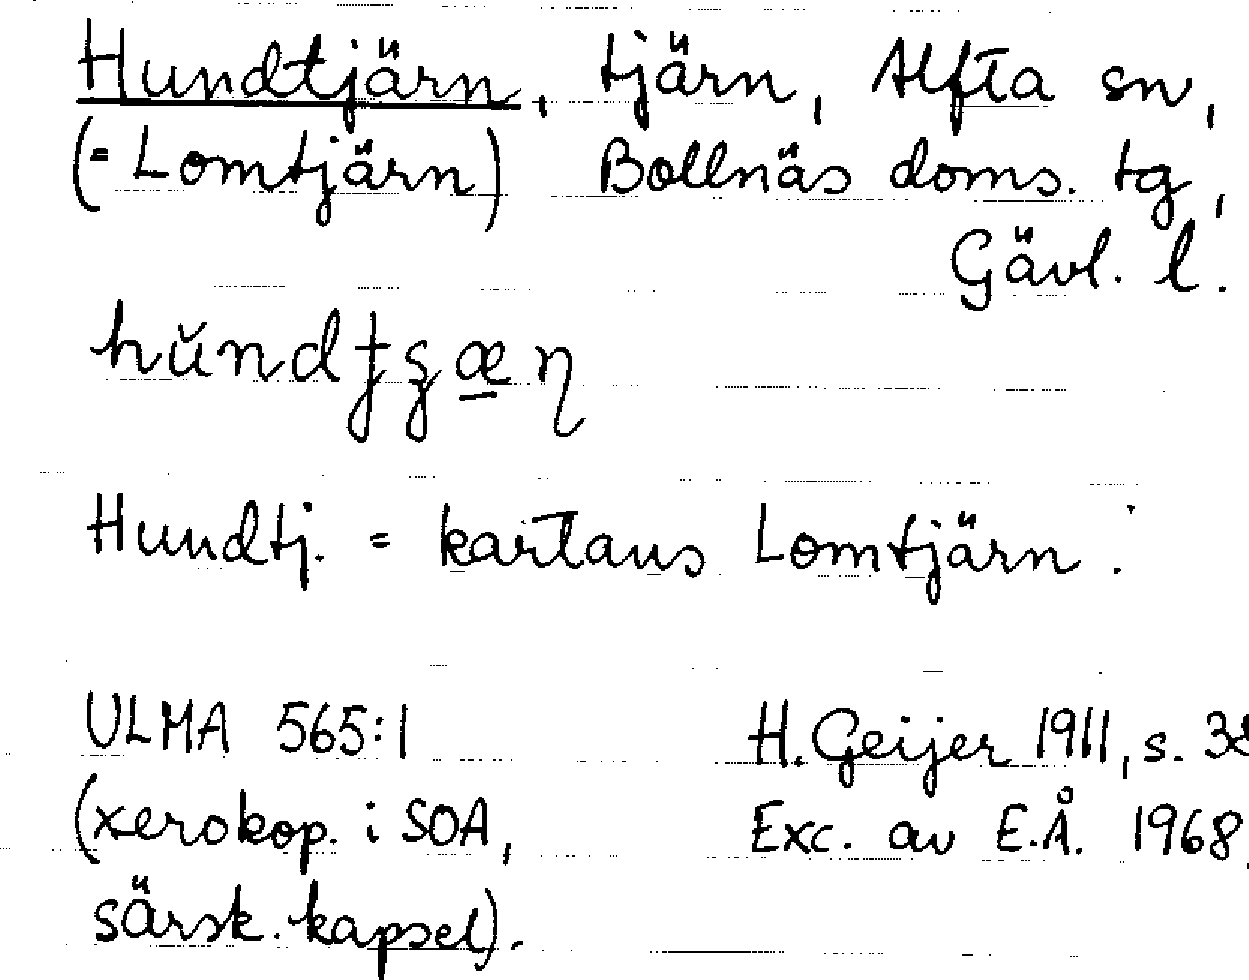 Hundtjärn, tjärn, Alfta sn,
(= Lomtjärn) Bollnäs doms. tg,
Gävl. l.
Hundtj. = kartans Lomtjärn.
ULMA 565:1 H. Geijer 1911, s.
(xerokop. i SOA, Exc. av E.Å. 1968.
särsk. kapsel).